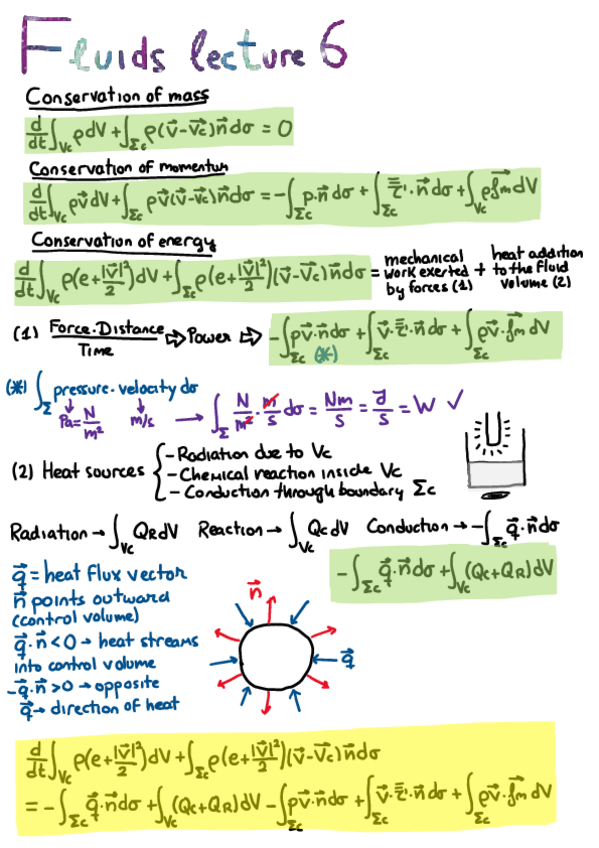 Fluids lecture 6
Conservation of mass
d/dt ∫_Vc ρdV + ∫_Σc ρ(v⃗-v⃗c)n⃗dσ = 0
Conservation of momentum
d/dt ∫_Vc ρv⃗dV + ∫_Σc ρv⃗(v⃗-v⃗c)n⃗dσ = -∫_Σc p.n⃗dσ + ∫_Σc τ̿'·n⃗dσ + ∫_Vc ρf⃗m dV
Conservation of energy
d/dt ∫_Vc ρ(e+|v⃗|²/2)dV + ∫_Σc ρ(e+|v⃗|²/2)(v⃗-v⃗c)n⃗dσ = mechanical work exerted by forces (1) + heat addition to the fluid volume (2)
(1) Force·Distance/Time ⇨ Power ⇨ -∫_Σc pv⃗·n⃗dσ + ∫_Σc v⃗·τ̿'·n⃗dσ + ∫_Vc ρv⃗·f⃗m dV
(*)
(*) ∫_Σ pressure·velocity dσ
Pa = N/m² m/s → ∫_Σ N/m² · m/s dσ = Nm/s = J/s = W ✓
(2) Heat sources { - Radiation due to Vc
- Chemical reaction inside Vc
- Conduction through boundary Σc
Radiation → ∫_Vc QRdV Reaction → ∫_Vc QcdV Conduction → -∫_Σc q⃗·n⃗dσ
-∫_Σc q⃗·n⃗dσ + ∫_Vc (Qc+QR)dV
q⃗ = heat flux vector
n⃗ points outward
(control volume)
q⃗·n⃗<0 → heat streams
into control volume
-q⃗·n⃗>0 → opposite
q⃗ → direction of heat
n⃗
q⃗
d/dt ∫_Vc ρ(e+|v⃗|²/2)dV + ∫_Σc ρ(e+|v⃗|²/2)(v⃗-v⃗c)n⃗dσ
= -∫_Σc q⃗·n⃗dσ + ∫_Vc (Qc+QR)dV - ∫_Σc pv⃗·n⃗dσ + ∫_Σc v⃗·τ̿'·n⃗dσ + ∫_Vc ρv⃗·f⃗m dV